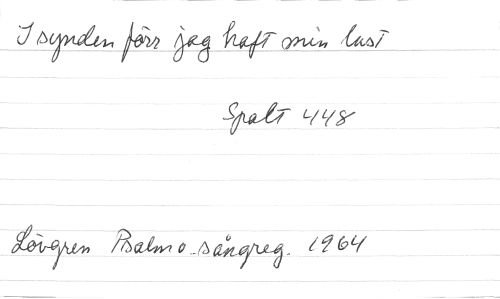 I synden förr jag haft min lust
Spalt 448
Lövgren Psalm o. sångreg. 1964